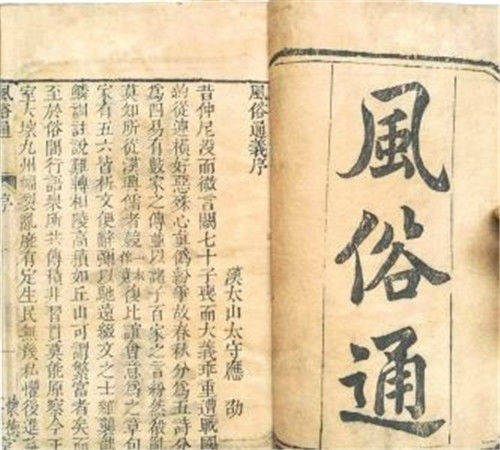 風俗通
風俗通義序
漢太山太守應劭
昔仲尼沒而微言闕七十子喪而大義乖重遭戰國
約從連橫好惡殊心真偽紛爭故春秋分為五詩分
為四易有數家之傳並以諸子百家之言紛然殽亂
莫知所從漢興儒者競復比誼會意為之章句
家有五六皆析文便辭彌以馳遠綴文之士雜襲龍
鱗訓註說難轉相陵高積如丘山可謂繁富者矣而
至於俗間行語眾所共傳積非習貫莫能原察今王
室大壞九州幅裂亂靡有定生民無幾私懼後進
風俗通
序